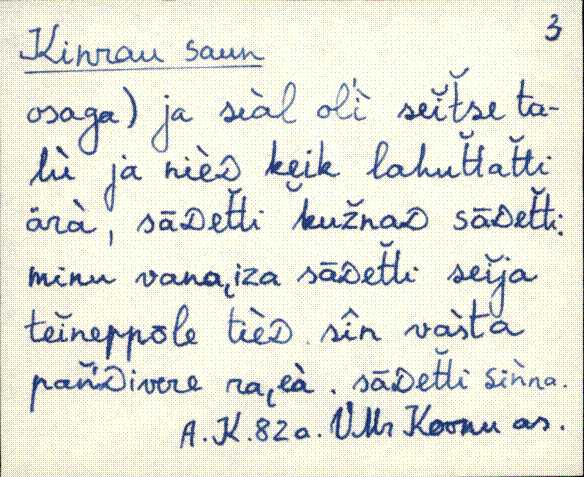 3
Kinrau saun
osaga) ja sèal ol'ì seit̆se ta-
lù ja nièᴅ keik lahut̆tat̆ti
ärà, sāᴅet̆ti k̆užnaᴅ sāᴅet̆ti.
minu vana,iza sāᴅet̆ti seĭja
teĭneppōle tièᴅ. sîn vàsta
pañᴅivere ra,eà. sāᴅet̆ti siǹna.
A. K. 82 a. VMr Koonu as.